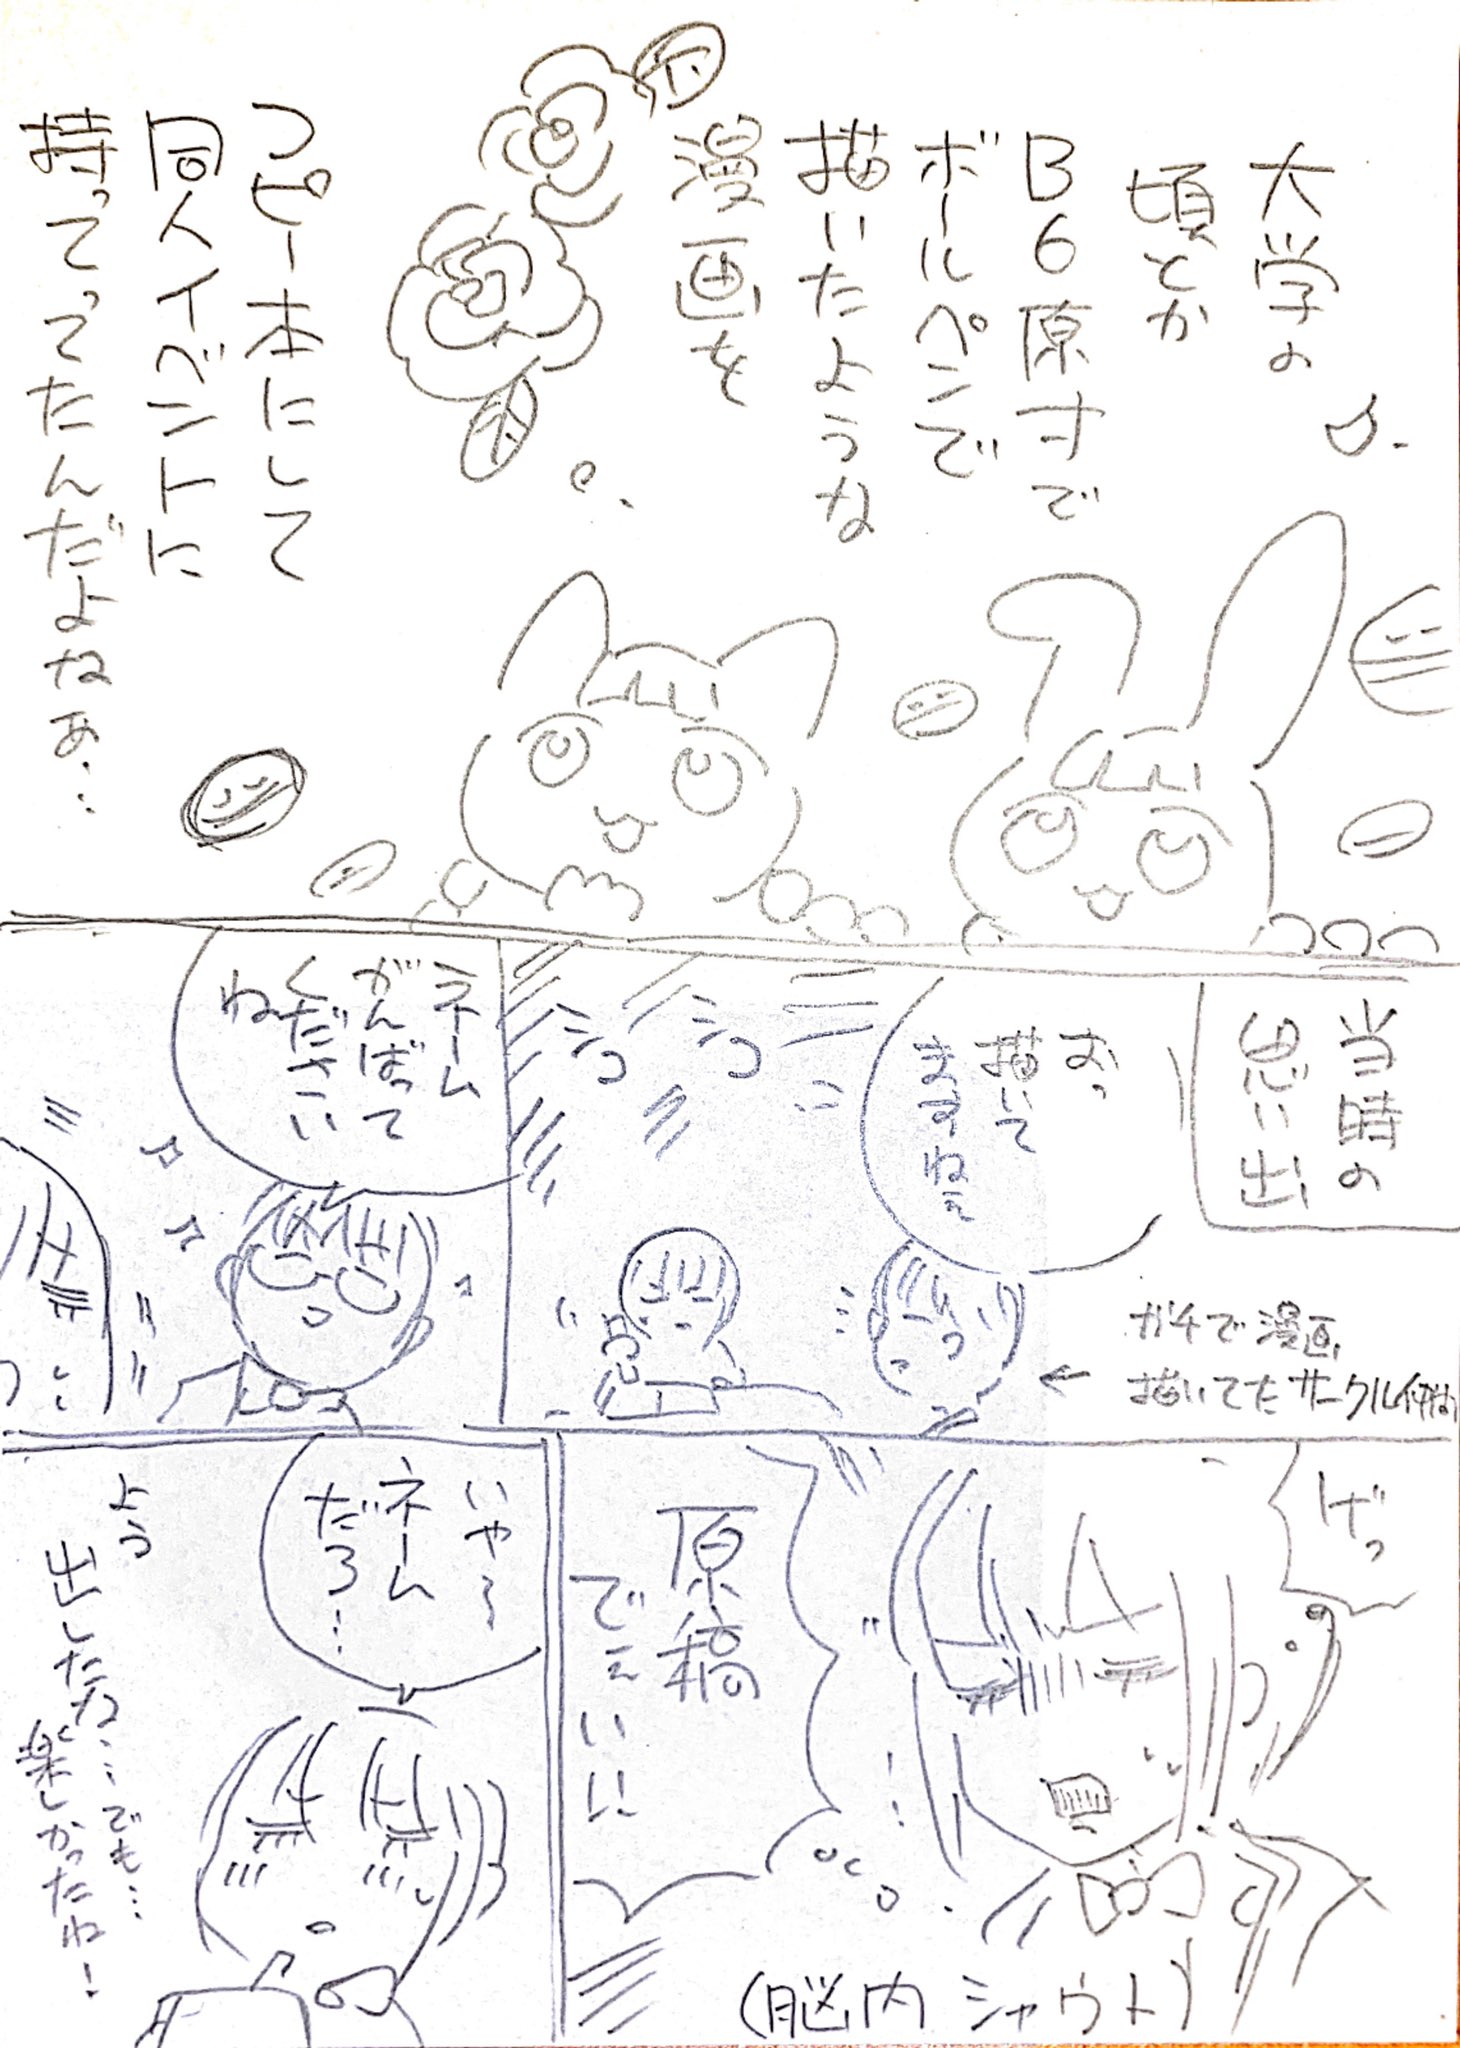 大学の
頃とか
B6原寸で
ボールペンで
描いたような
漫画を
コピー本にして
同人イベントに
持ってってたんだよなぁ…
当時の
思い出
おっ
描いて
ますねぇ
ガチで漫画
描いてたサークル仲間
ニコ
ニコ
ネーム
がんばって
ください
ね
げっ
原稿の
でぇいい!!
(脳内シャウト)
いや〜
ネーム
だろ…
よう
出したな…でも…
楽しかったね!